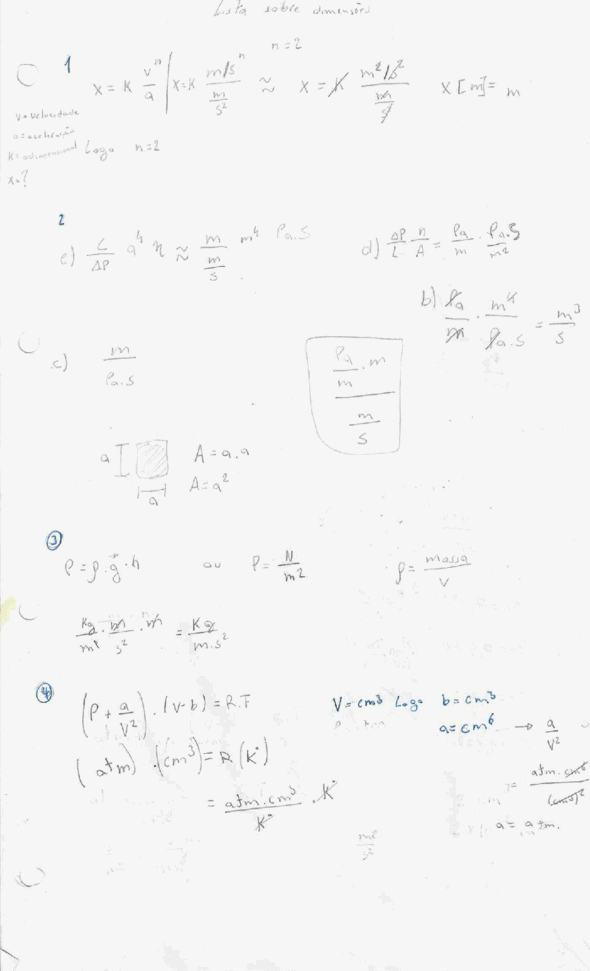 Lista sobre dimensões
1
n=2
X = K v^n/a | X = K (m/s)^n / (m/s²) ≈ X = K (m²/s²) / (m/s²) X [m] = m
V = velocidade
a = aceleração
K = adimensional Logo n=2
X = ?
2
e) L/ΔP a⁴ η ≈ m/(m/s) m⁴ Pa.s
d) ΔP/L η/A = Pa/m . Pa.s/m²
b) Pa/m . m⁴/Pa.s = m³/s
c) m/Pa.s
(Pa/m . m) / (m/s)
a A = a.a
a A = a²
3
P = ρ.g.h ou P = N/m² ρ = massa/V
Kg/m³ . m/s² . m = Kg/m.s²
4
(P + a/V²).(V-b) = R.T V = cm³ Logo b = cm³
a = cm⁶ → a/V²
(atm).(cm³) = R (K°)
= atm.cm³/K° . K°
= atm.cm⁶/(cm³)²
a = atm.
m²/s²